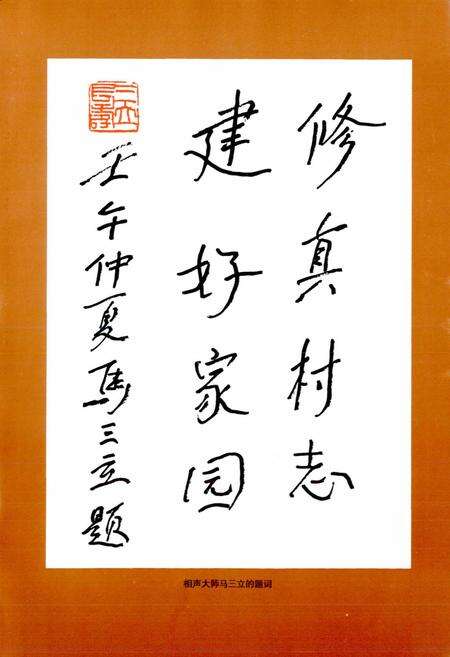 修真村志
建好家园
壬午仲夏马三立题
相声大师马三立的题词